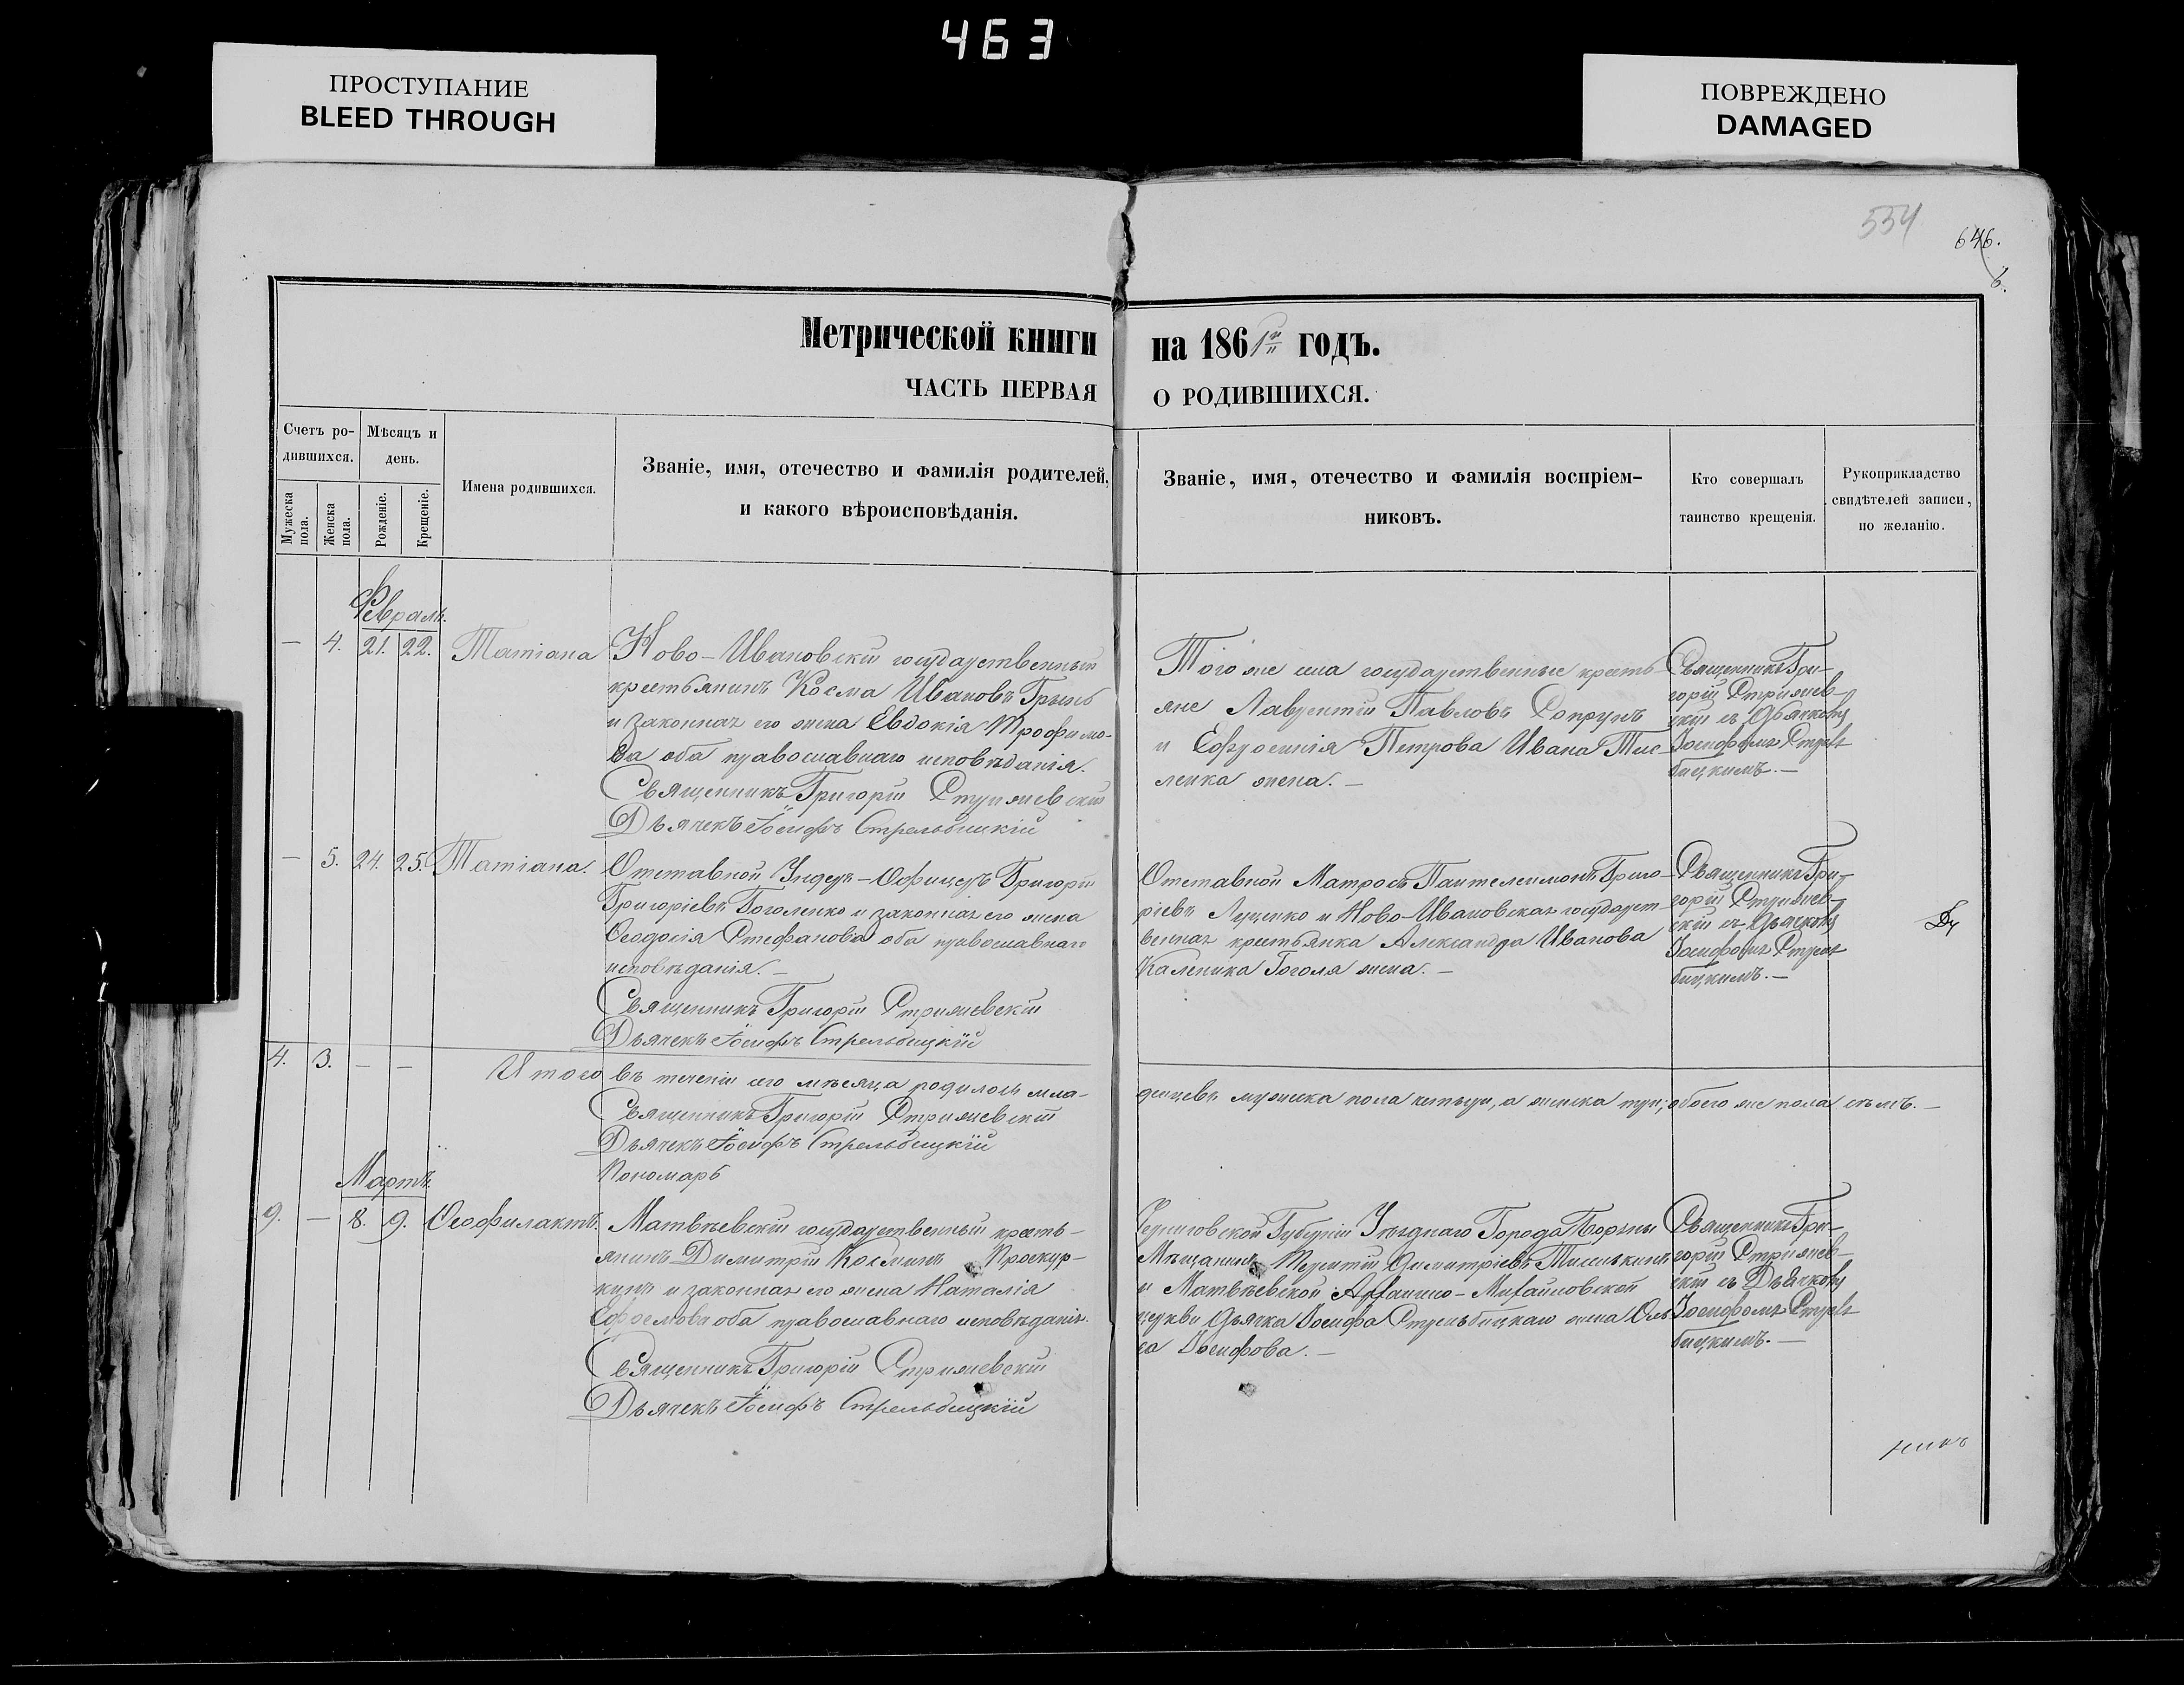 463
ПРОСТУПАНИЕ
BLEED THROUGH
ПОВРЕЖДЕНО
DAMAGED
554
646.
6.
Метрической книги на 1861 годъ.
ЧАСТЬ ПЕРВАЯ О РОДИВШИХСЯ.
Счетъ ро-
дившихся.
Мѣсяцъ и
день.
Мужеска
пола.
Женска
пола.
Рожденіе.
Крещеніе.
Имена родившихся.
Званіе, имя, отечество и фамилія родителей,
и какого вѣроисповѣданія.
Званіе, имя, отечество и фамилія воспріем-
никовъ.
Кто совершалъ
таинство крещенія.
Рукоприкладство
свидѣтелей записи,
по желанію.
Февраль.
— 4. 21. 22. Татіана
Ново-Ивановскій государственный
крестьянинъ Косма Ивановъ Грынь
и законная его жена Евдокія Трофимо-
ва оба православнаго исповѣданія.
Священникъ Григорій Стрижевскій
Дьячекъ Іосифъ Стрельбицкій
Того же села государственные кресть-
яне Лаврентій Павловъ Сопрунъ
и Ефросинія Петрова Ивана Тис-
ленка жена. —
Священникъ Гри-
горій Стрижев-
скій съ Дьячкомъ
Іосифомъ Стрель-
бицкимъ. —
— 5. 24. 25. Татіана.
Отставной Ундеръ-Офицеръ Григорій
Григоріевъ Гоголенко и законная его жена
Ѳеодосія Стефанова оба православнаго
исповѣданія. —
Священникъ Григорій Стрижевскій
Дьячекъ Іосифъ Стрельбицкій
Отставной Матросъ Пантелеимонъ Григо-
ріевъ Луценко и Ново-Ивановская государст-
венная крестьянка Александра Иванова
Каленика Гоголя жена. —
Священникъ Гри-
горій Стрижев-
скій съ Дьячкомъ
Іосифомъ Стрель-
бицкимъ. —
4. 3. — — Итого въ теченіи сего мѣсяца родилось мла-
денцевъ мужеска пола четыри, а женска три; обоего же пола семъ. —
Священникъ Григорій Стрижевскій
Дьячекъ Іосифъ Стрельбицкій
Пономарь
Мартъ.
9. — 8. 9. Ѳеофилактъ.
Матвѣевскій государственный кресть-
янинъ Димитрій Косминъ Проскур-
кинъ и законная его жена Наталія
Ефремова оба православнаго исповѣданія.
Священникъ Григорій Стрижевскій
Дьячекъ Іосифъ Стрельбицкій
Черниговской Губерніи Уѣзднаго Города Борзны
Мѣщанинъ Терентій Димитріевъ
и Матвѣевской Архангело-Михайловской
церкви Дьячка Іосифа Стрельбицкаго жена Оль-
га Іосифова. —
Священникъ Гри-
горій Стрижев-
скій съ Дьячкомъ
Іосифомъ Стрель-
бицкимъ. —